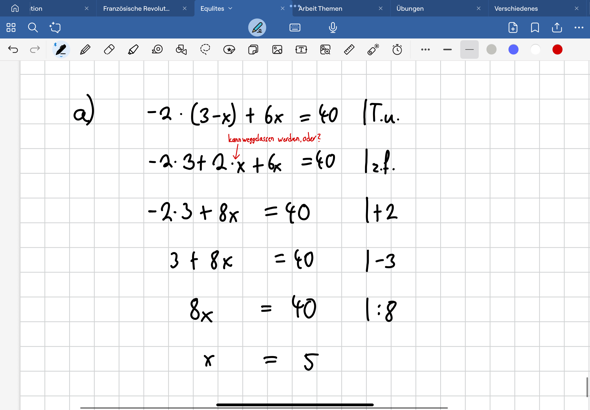 tion
Französische Revolut...
Equlites
Arbeit Themen
Übungen
Verschiedenes
a) -2 · (3-x) + 6x = 40 |T.u.
kann weggelassen werden, oder?
-2·3+ 2·x + 6x = 40 |z.f.
-2·3 + 8x = 40 |+2
3 + 8x = 40 |-3
8x = 40 |:8
x = 5